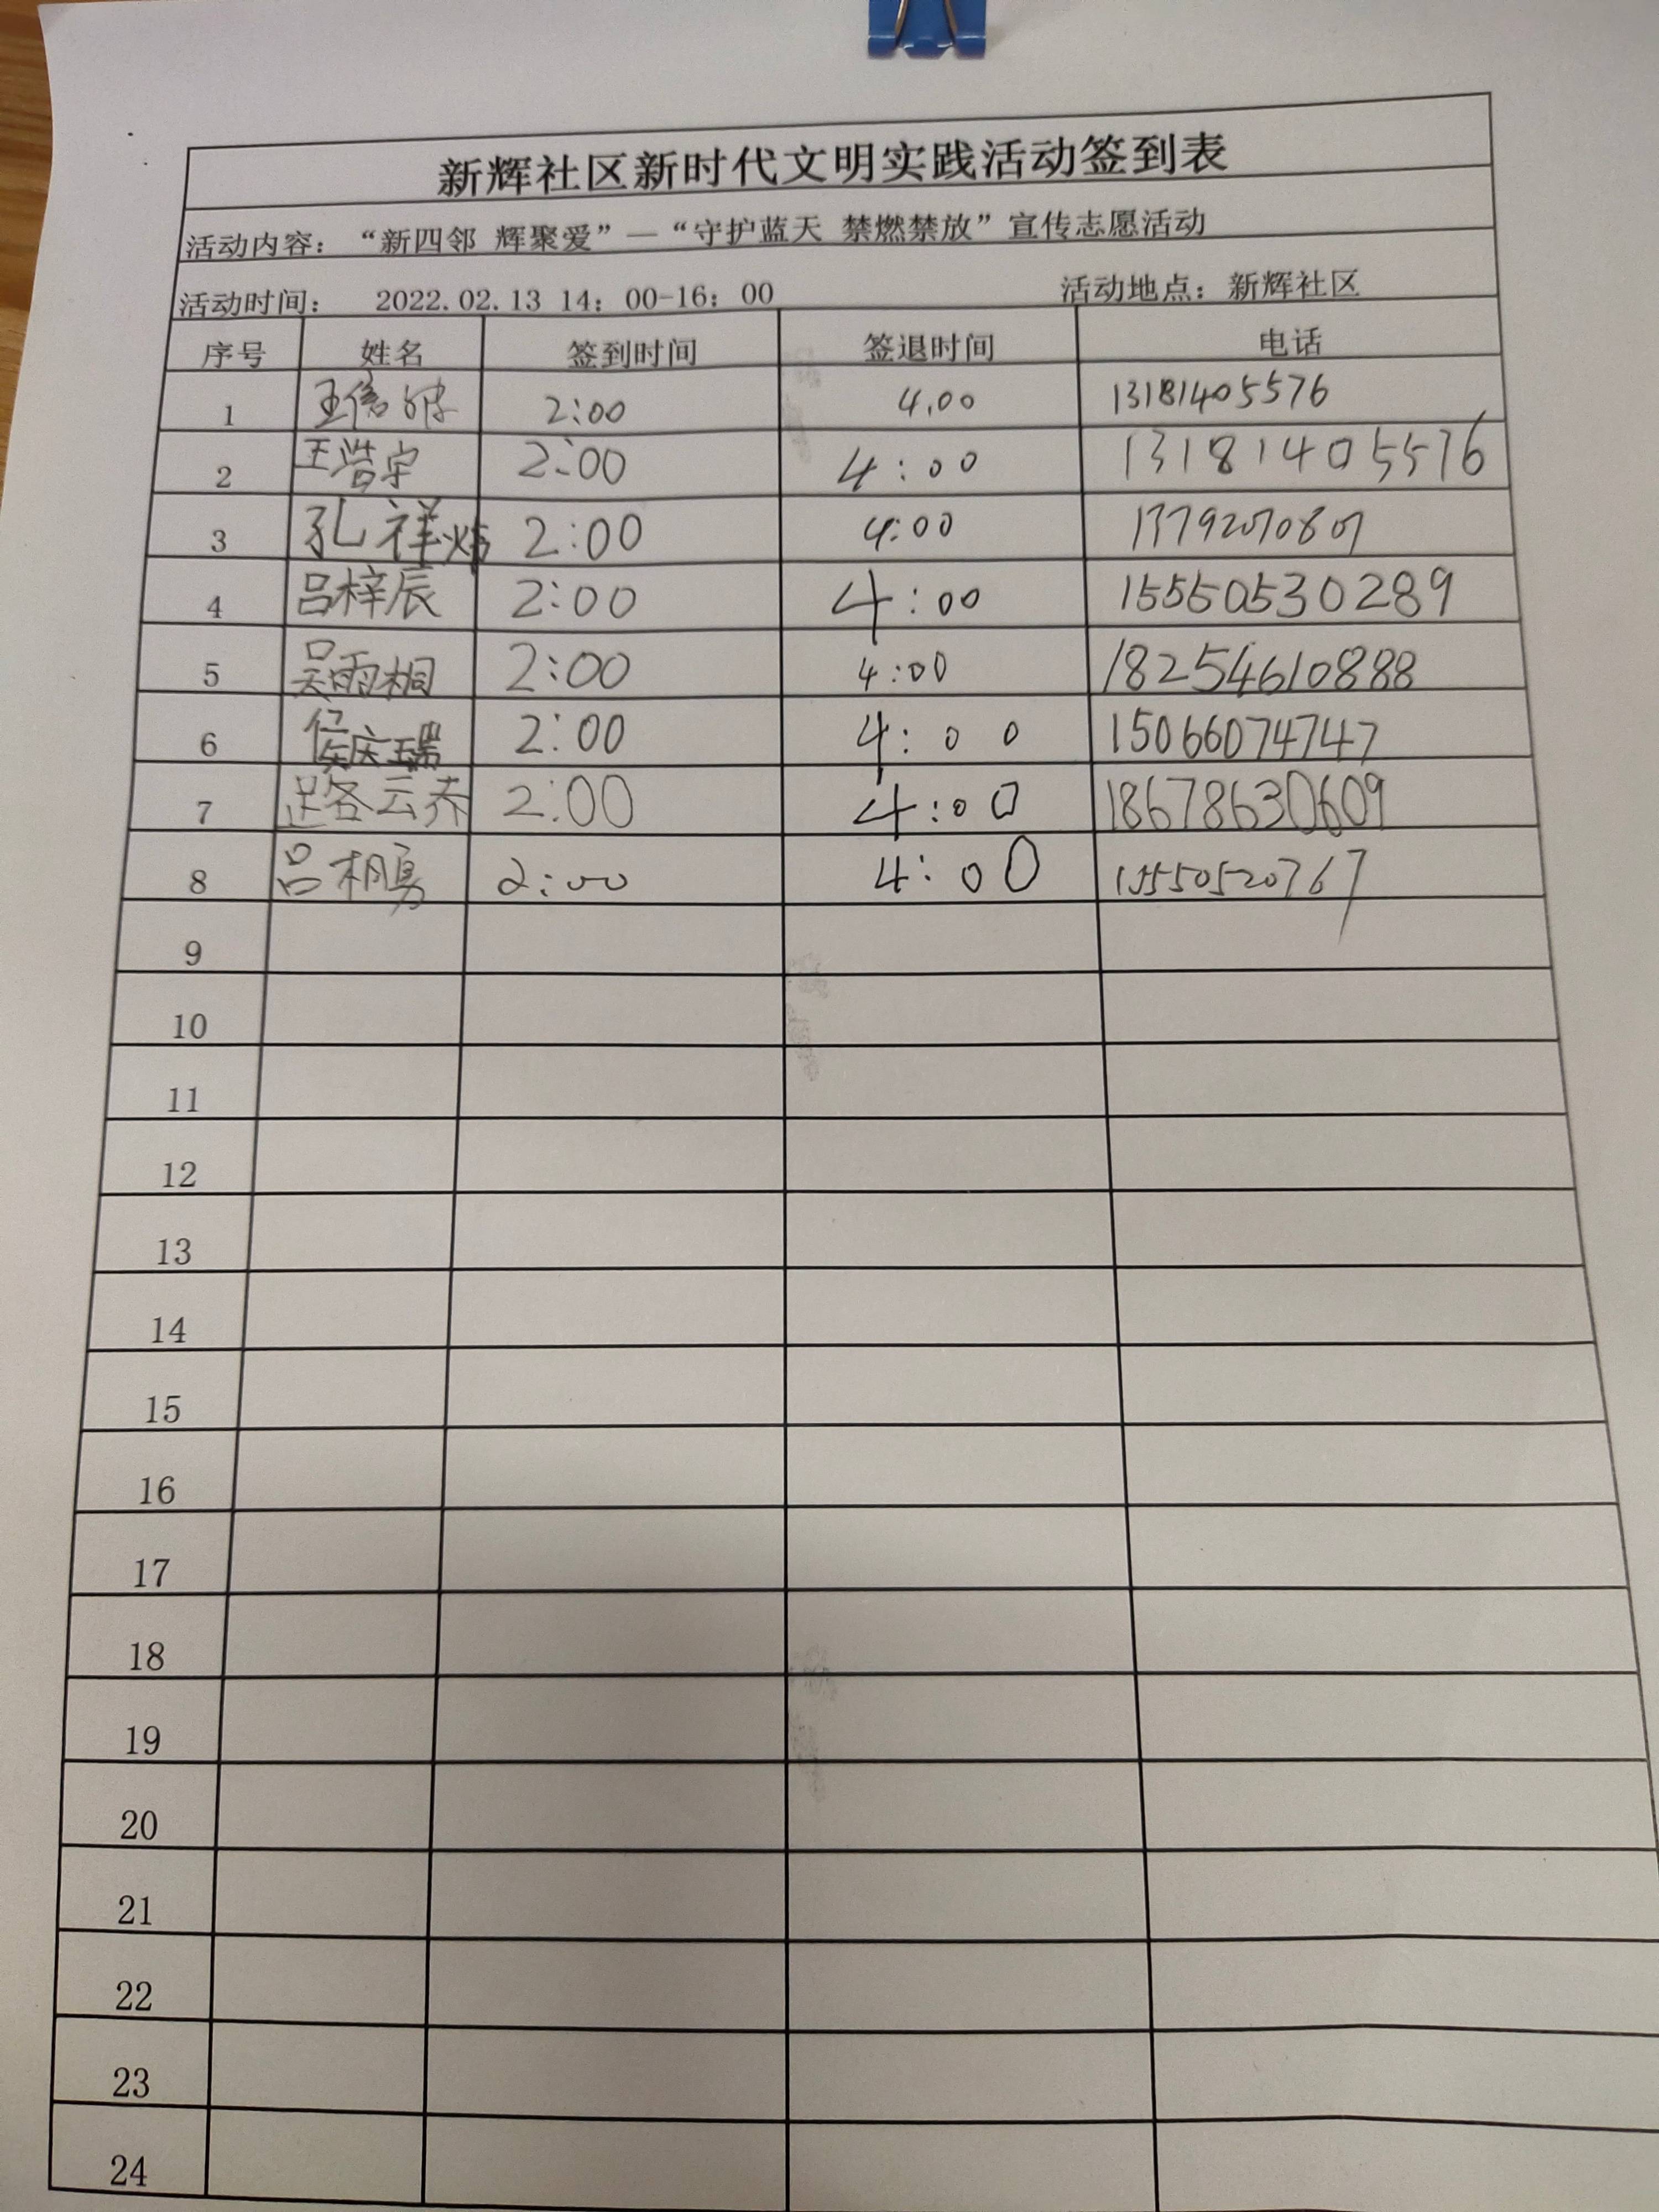 新辉社区新时代文明实践活动签到表
活动内容：“新四邻 辉聚爱”—“守护蓝天 禁燃禁放”宣传志愿活动
活动时间： 2022.02.13 14：00-16：00 活动地点：新辉社区
序号 姓名 签到时间 签退时间 电话
1 王 2:00 4.00 13181405576
2 王浩宇 2:00 4:00 13181405576
3 孔祥炜 2:00 4:00
4 吕梓辰 2:00 4:00 15550530289
5 吴雨桐 2:00 4:00 18254610888
6 侯庆瑞 2:00 4:00 15066074747
7 路云乔 2:00 4:00 18678630609
8 吕桐勇 2:00 4:00 15550520767
9
10
11
12
13
14
15
16
17
18
19
20
21
22
23
24